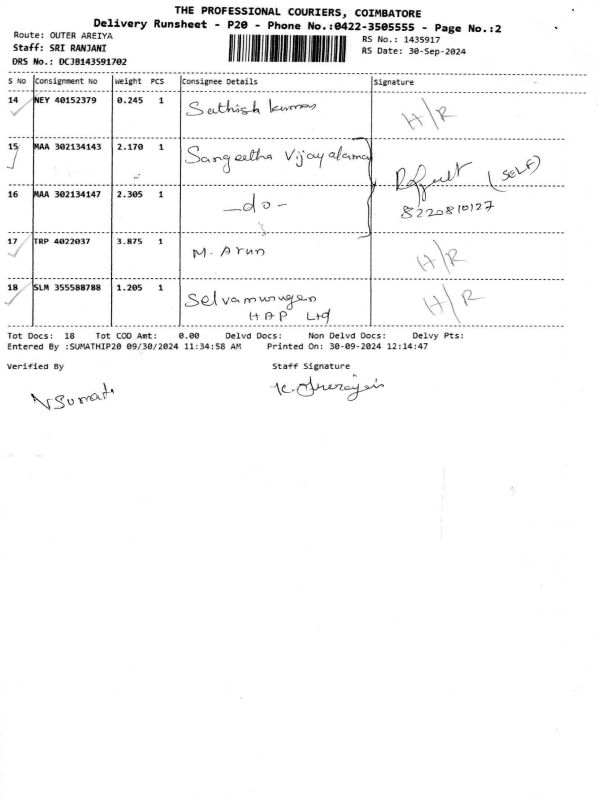 THE PROFESSIONAL COURIERS, COIMBATORE
Delivery Runsheet - P20 - Phone No.:0422-3505555 - Page No.:2
Route: OUTER AREIYA
RS No.: 1435917
Staff: SRI RANJANI
RS Date: 30-Sep-2024
DRS No.: DCJB143591702
S No Consignment No Weight PCS Consignee Details Signature
14 NEY 40152379 0.245 1 Sathish kumar H/R
15 MAA 302134143 2.170 1 Sangeetha Vijayalama
(SELF)
16 MAA 302134147 2.305 1 -do- 8220810127
17 TRP 4022037 3.875 1 M. Arun H/R
18 SLM 355588788 1.205 1 Selvamurugen H/R
HAP Ltd
Tot Docs: 18 Tot COD Amt: 0.00 Delvd Docs: Non Delvd Docs: Delvy Pts:
Entered By :SUMATHIP20 09/30/2024 11:34:58 AM Printed On: 30-09-2024 12:14:47
Verified By Staff Signature